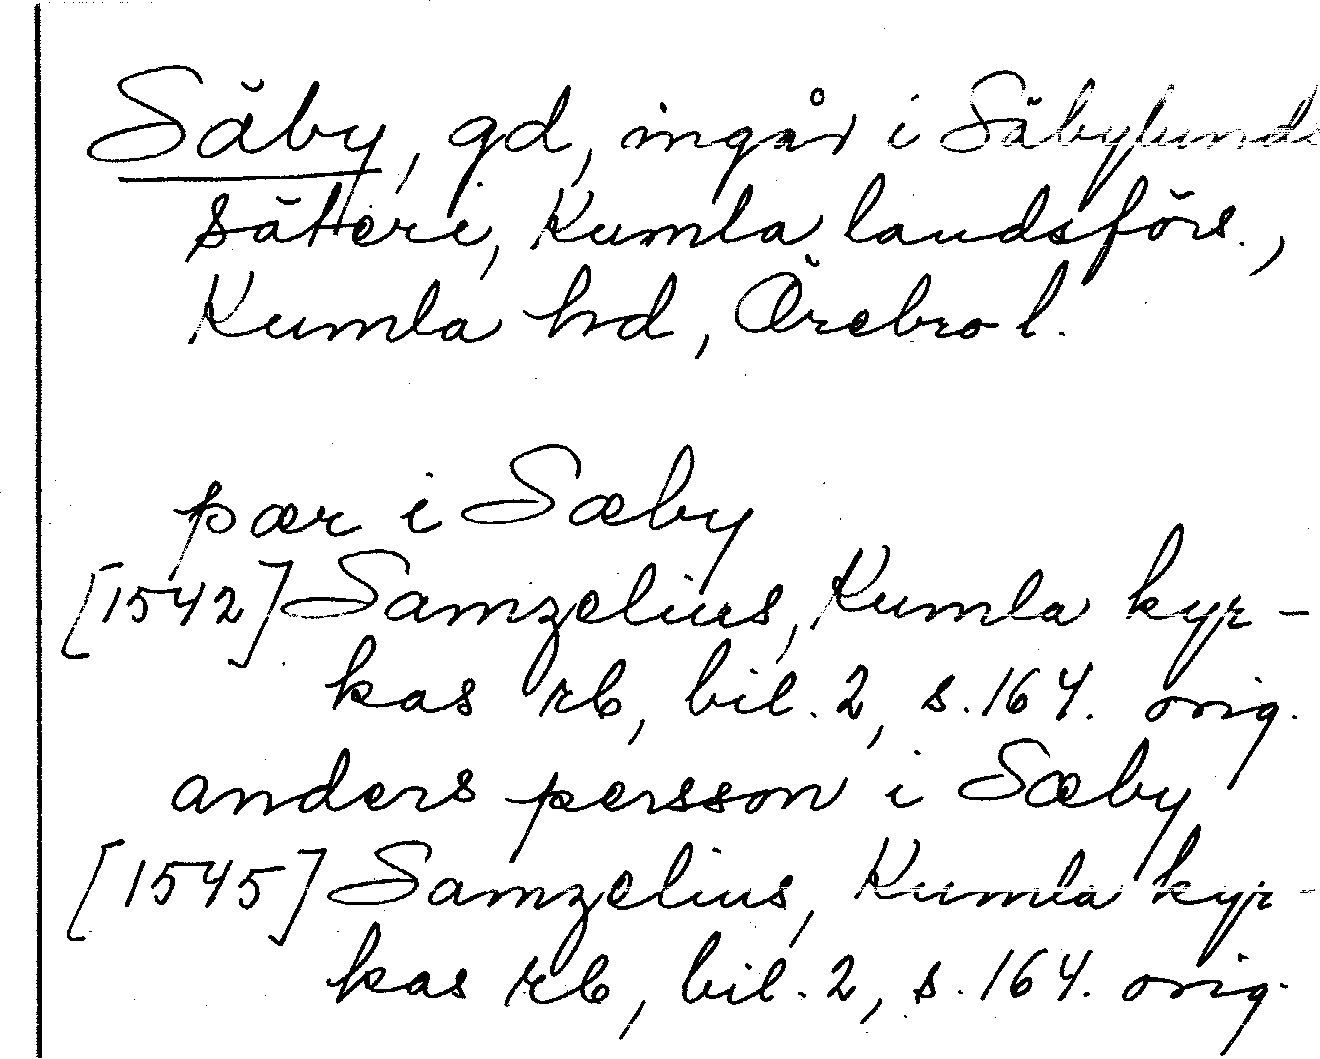 Säby, gd, ingår i Säbylunds
säteri, Kumla landsförs.,
Kumla hd, Örebro l.
pær i Sæby
[1542] Samzelius, Kumla kyr-
kas rb, bil. 2, s. 164. orig.
anders persson i Sæby
[1545] Samzelius, Kumla kyr-
kas rb, bil. 2, s. 164. orig.